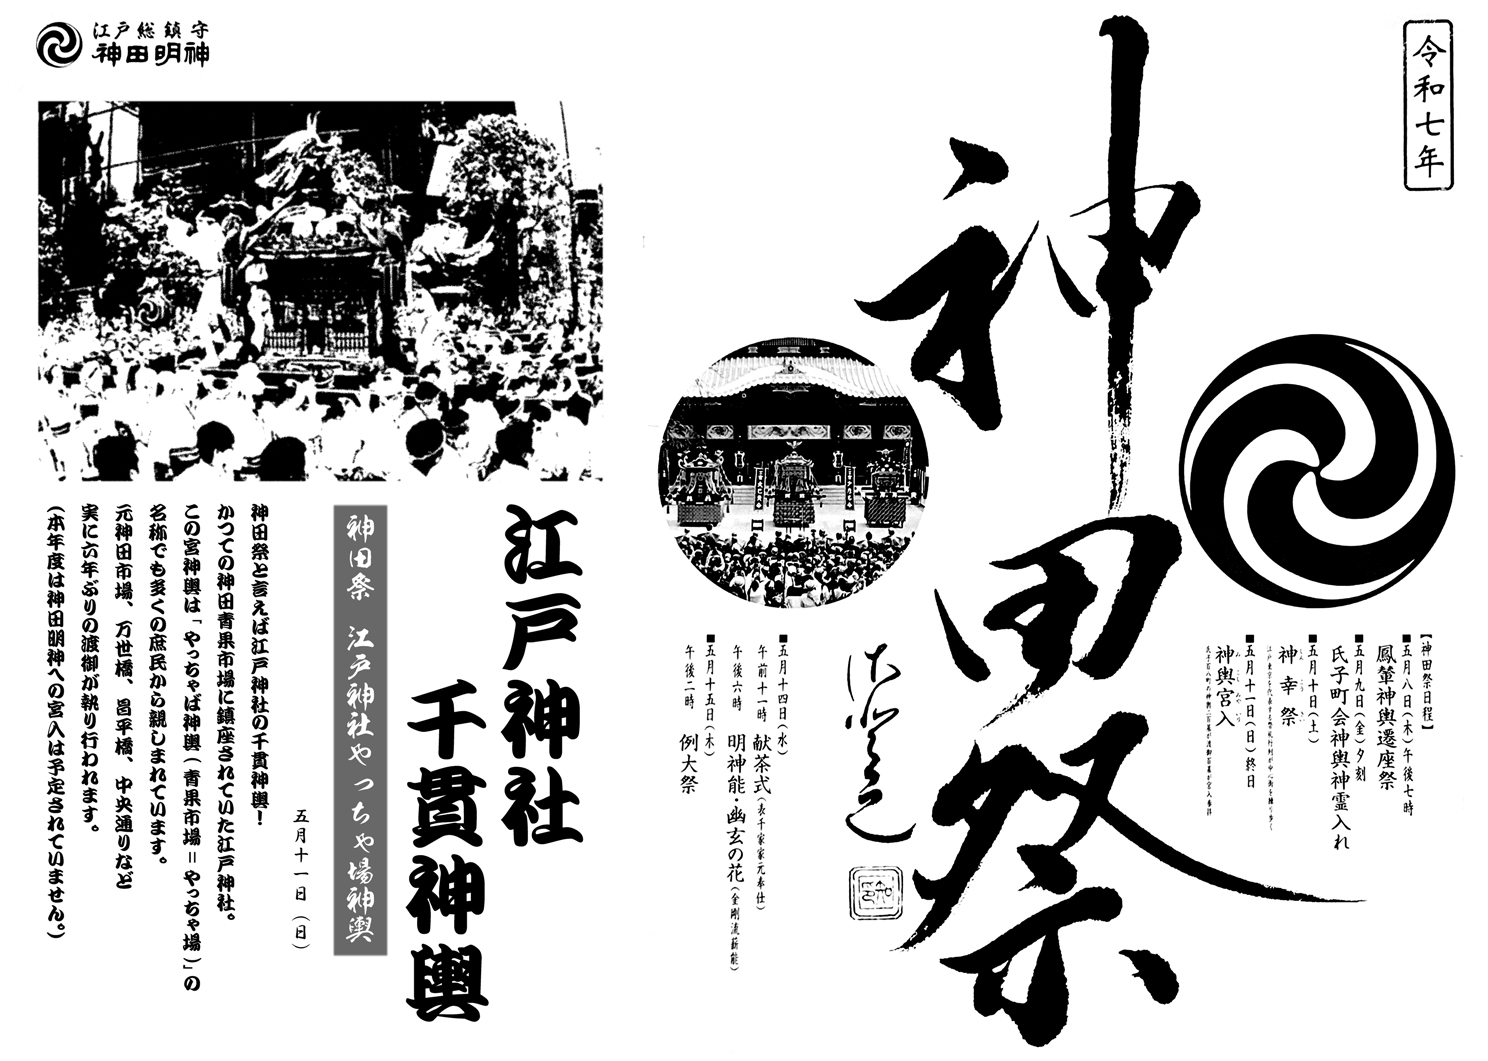 令和七年
神田祭
【神田祭日程】
■五月八日(木)午後七時
鳳輦神輿遷座祭
■五月九日(金)夕刻
氏子町会神輿神霊入れ
■五月十日(土)
神幸祭
■五月十一日(日)終日
神輿宮入
■五月十四日(水)
午前十一時 献茶式(表千家家元奉仕)
午後六時 明神能・幽玄の花(金剛流薪能)
■五月十五日(木)
午後二時 例大祭
江戸総鎮守
神田明神
江戸神社
千貫神輿
神田祭 江戸神社やっちゃ場神輿
五月十一日(日)
神田祭と言えば江戸神社の千貫神輿!
かつての神田青果市場に鎮座されていた江戸神社。
この宮神輿は「やっちゃば神輿(青果市場=やっちゃ場)」の
名称でも多くの庶民から親しまれています。
元神田市場、万世橋、昌平橋、中央通りなど
実に六年ぶりの渡御が執り行われます。
(本年度は神田明神への宮入は予定されていません。)